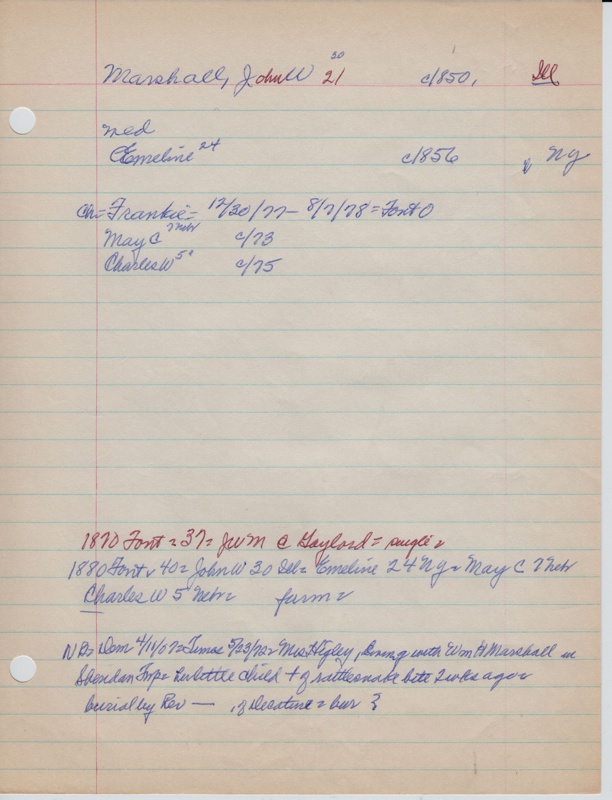 30
Marshall, John W 21 c/850, Ill
med
Emeline 24 c/856 Ny
ch= Frankie= 12/30/77- 8/7/78 = Font O
May C 7 Nebr c/73
Charles W 5" c/75
1870 Font = 37= JWM @ Gaylord= single =
1880 Font 40= John W 30 Ill= Emeline 24 Ny= May C 7 Nebr
Charles W 5 Nebr= farm=
NB= Dem 4/11/07= Times 5/23/72= Mrs Higley, living with Wm H Marshall in
Sheridan Twp= her little child + of rattlesnake bite 2 wks ago=
burial by Rev — , of Decatur = bur ?